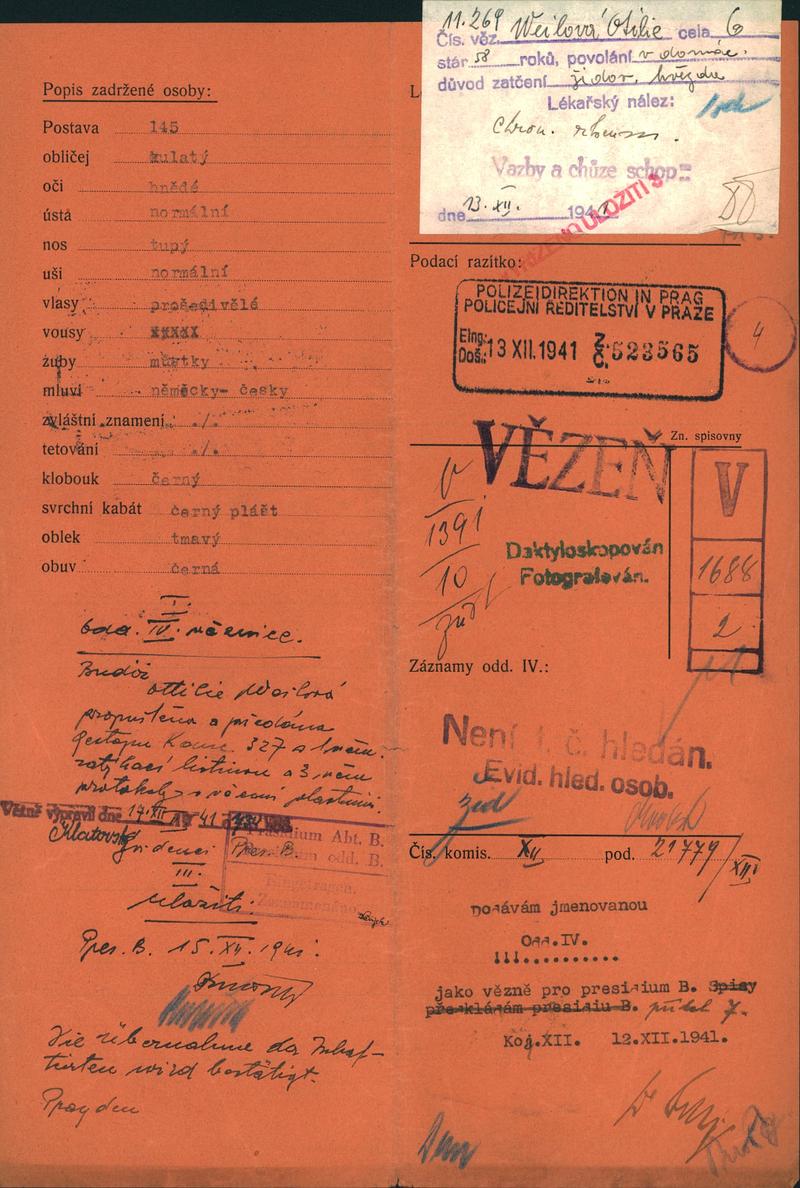 Popis zadržené osoby:
Postava 145
obličej kulatý
oči hnědé
ústá normální
nos tupý
uši normální
vlasy prošedivělé
vousy xxxxx
zuby můstky
mluví německy- česky
zvláštní znamení ./.
tetování ./.
klobouk černý
svrchní kabát černý plášť
oblek tmavý
obuv černá
I.
odd. IV. věznice.
Budiž
Ottilie Weilová
propuštěna a předána
gestapu Kom. 327 s 1 věz.
zatýkací listinou a 3 
protokoly s 
Věrně vypravil dne 17. XII 1941
Klatovský
evidenci Pres. B.
Präsidium Abt. B.
Presidium odd. B.
Eingetragen.
Zaznamenáno.
III.
Uložiti.
Pres. B. 15. XII. 1941.
Die Übernahme der Inhaf-
tierten wird bestätigt.
Prag den
11.269
Čís. věz. Weilová Otilie cela 6
stár 58 roků, povolání v domác.
důvod zatčení židov. hvězda
Lékařský nález:
Chron. rheum.
Vazby a chůze schop
dne 13. XII. 1941
ULOŽITI
Podací razítko:
POLIZEIDIREKTION IN PRAG
POLICEJNÍ ŘEDITELSTVÍ V PRAZE
Eing.:
Doš.: 13 XII. 1941 Z. Č. 523565
4
VĚZEŇ
Zn. spisovny
V
1391
10
V
1688
2
Daktyloskopován
Fotografován.
Záznamy odd. IV.:
Není t. č. hledán.
Evid. hled. osob.
Čís. komis. XII pod. 21779/XII
Dodávám jmenovanou
Odd. IV.
jako vězně pro presidium B. Spisy
předkládám presidiu B.
Kom.XII. 12.XII.1941.